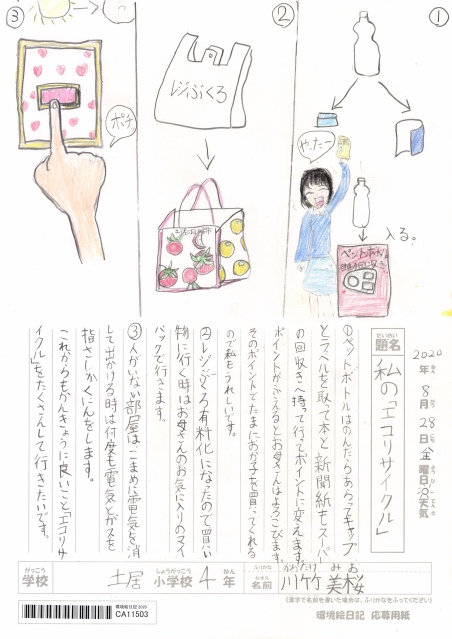 ①
②
③
やったー
ペットボトル
入る。
レジぶくろ
ポチッ
2020年8月28日金曜日
天気
だいめい
題名
私の「エコリサイクル」
①ペットボトルはのんだらあらってキャップ
とラベルを取って本と新聞紙もスーパー
の回収きへ持って行ってポイントに変えます。
ポイントがふえるとお母さんはよろこびます。
そのポイントでたまにお菓子を買ってくれる
ので私もうれしいです。
②レジぶくろ有料化になったので買い
物に行く時はお母さんのお気に入りのマイ
バックで行きます。
③人がいない部屋はこまめに電気を消
して出かける時は何度も電気とガスを
指さしかくにんをします。
これからもかんきょうに良いこと「エコリサ
イクル」をたくさんして行きたいです。
がっこう
学校
土居
しょうがっこう
小学校
4
ねん
年
ふりがな
かわたけ みお
なまえ
名前
川竹 美桜
(漢字で名前を書いた場合は、ふりがなをふってください)
環境絵日記2020
CA11503
環境絵日記 応募用紙